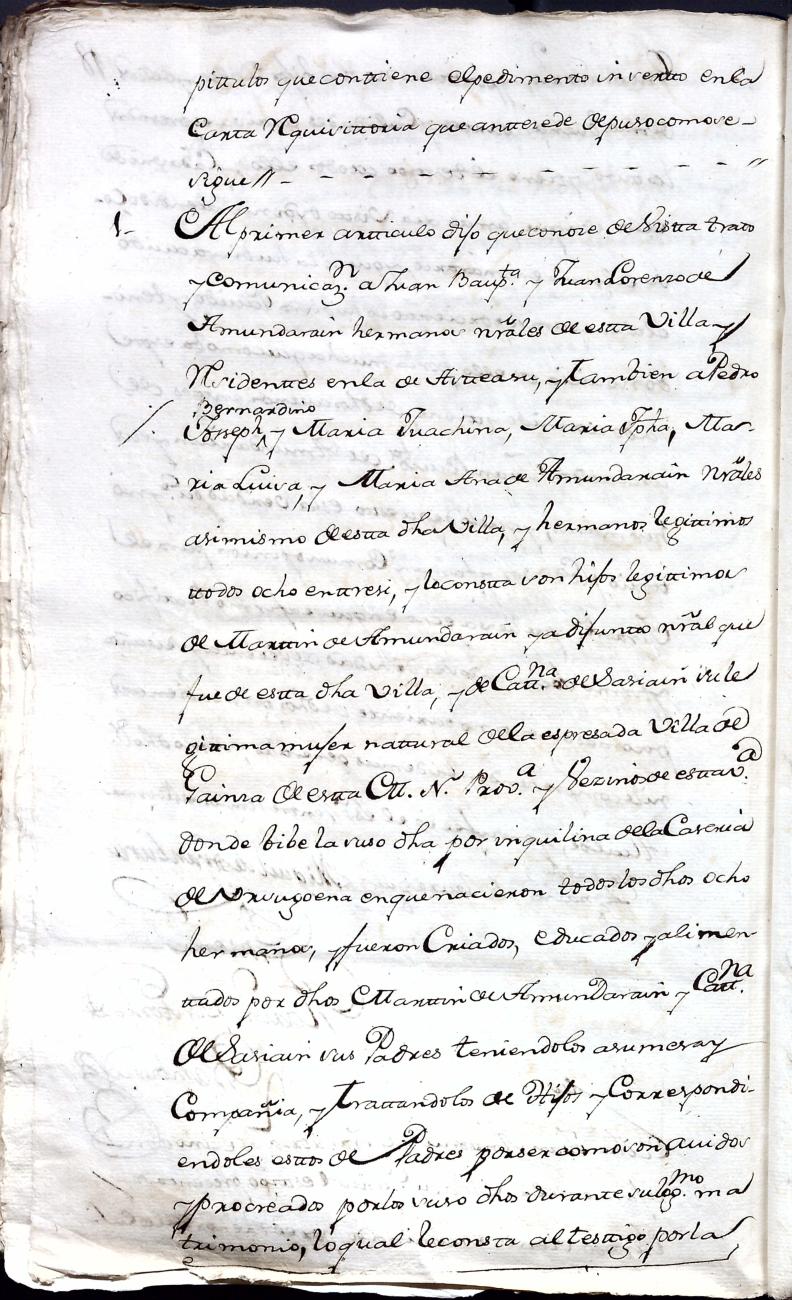 pittulos que conttiene el pedimento inserto en la
Cartta Requisittoria que anttezede depuso como se -
sigue // - - - - - - - - - - //
1- Al primer artticulo dijo que conoze de Vistta tratto
y comunicazn. a Juan Baupta. y Juan Lorenzo de
Amundarain hermanos nrãles de estta Villa y
Residenttes en la de Astteasu, y Tambien a Pedro
/. Bernardino
Joseph ^ y Maria Juachina, Maria Jpha, Ma-
ria Luisa, y Maria Ana de Amundarain nrãles
asimismo de estta dha Villa, y hermanos legittimos
ttodos ocho enttresi, y le constta son hijos legittimos
de Marttin de Amundarain ya difunto nrãl que
fue de estta dha Villa, y de Cattna. de Sasiain su le
gittima mujer nattural de la espresada Villa de
Gainza de estta M. N. Prova. y Vezinos de estta va.
donde bibe la suso dha por inquilina de la Caseria
de Ursugoena en que nacieron todos los dhos ocho
hermanos, y fueron Criados, educados y alimen
ttados por dhos Marttin de Amundarain y Cattna.
de Sasiain sus Padres teniendolos a su mesa y
Compañia, y Trattandolos de Hijos y Correspondi-
endoles esttos de Padres por ser como son avidos
y procreados por los suso dhos durante su legmo. ma
trimonio, lo qual le consta al testtigo por la